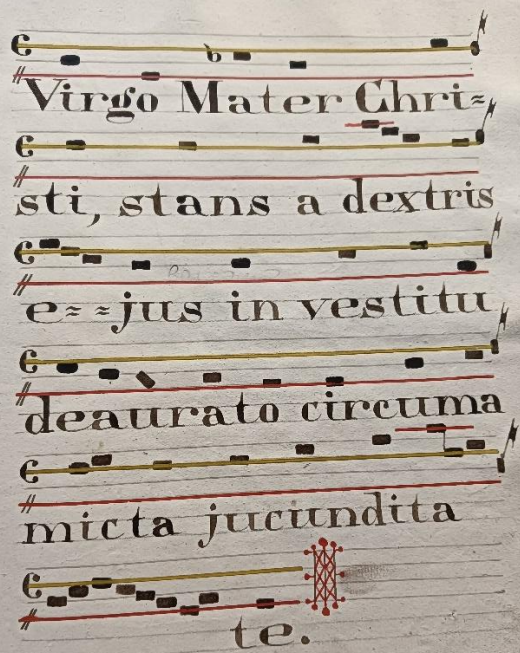 Virgo Mater Chri=
sti, stans a dextris
e= =jus in vestitu
deaurato circuma
micta jucundita
te.